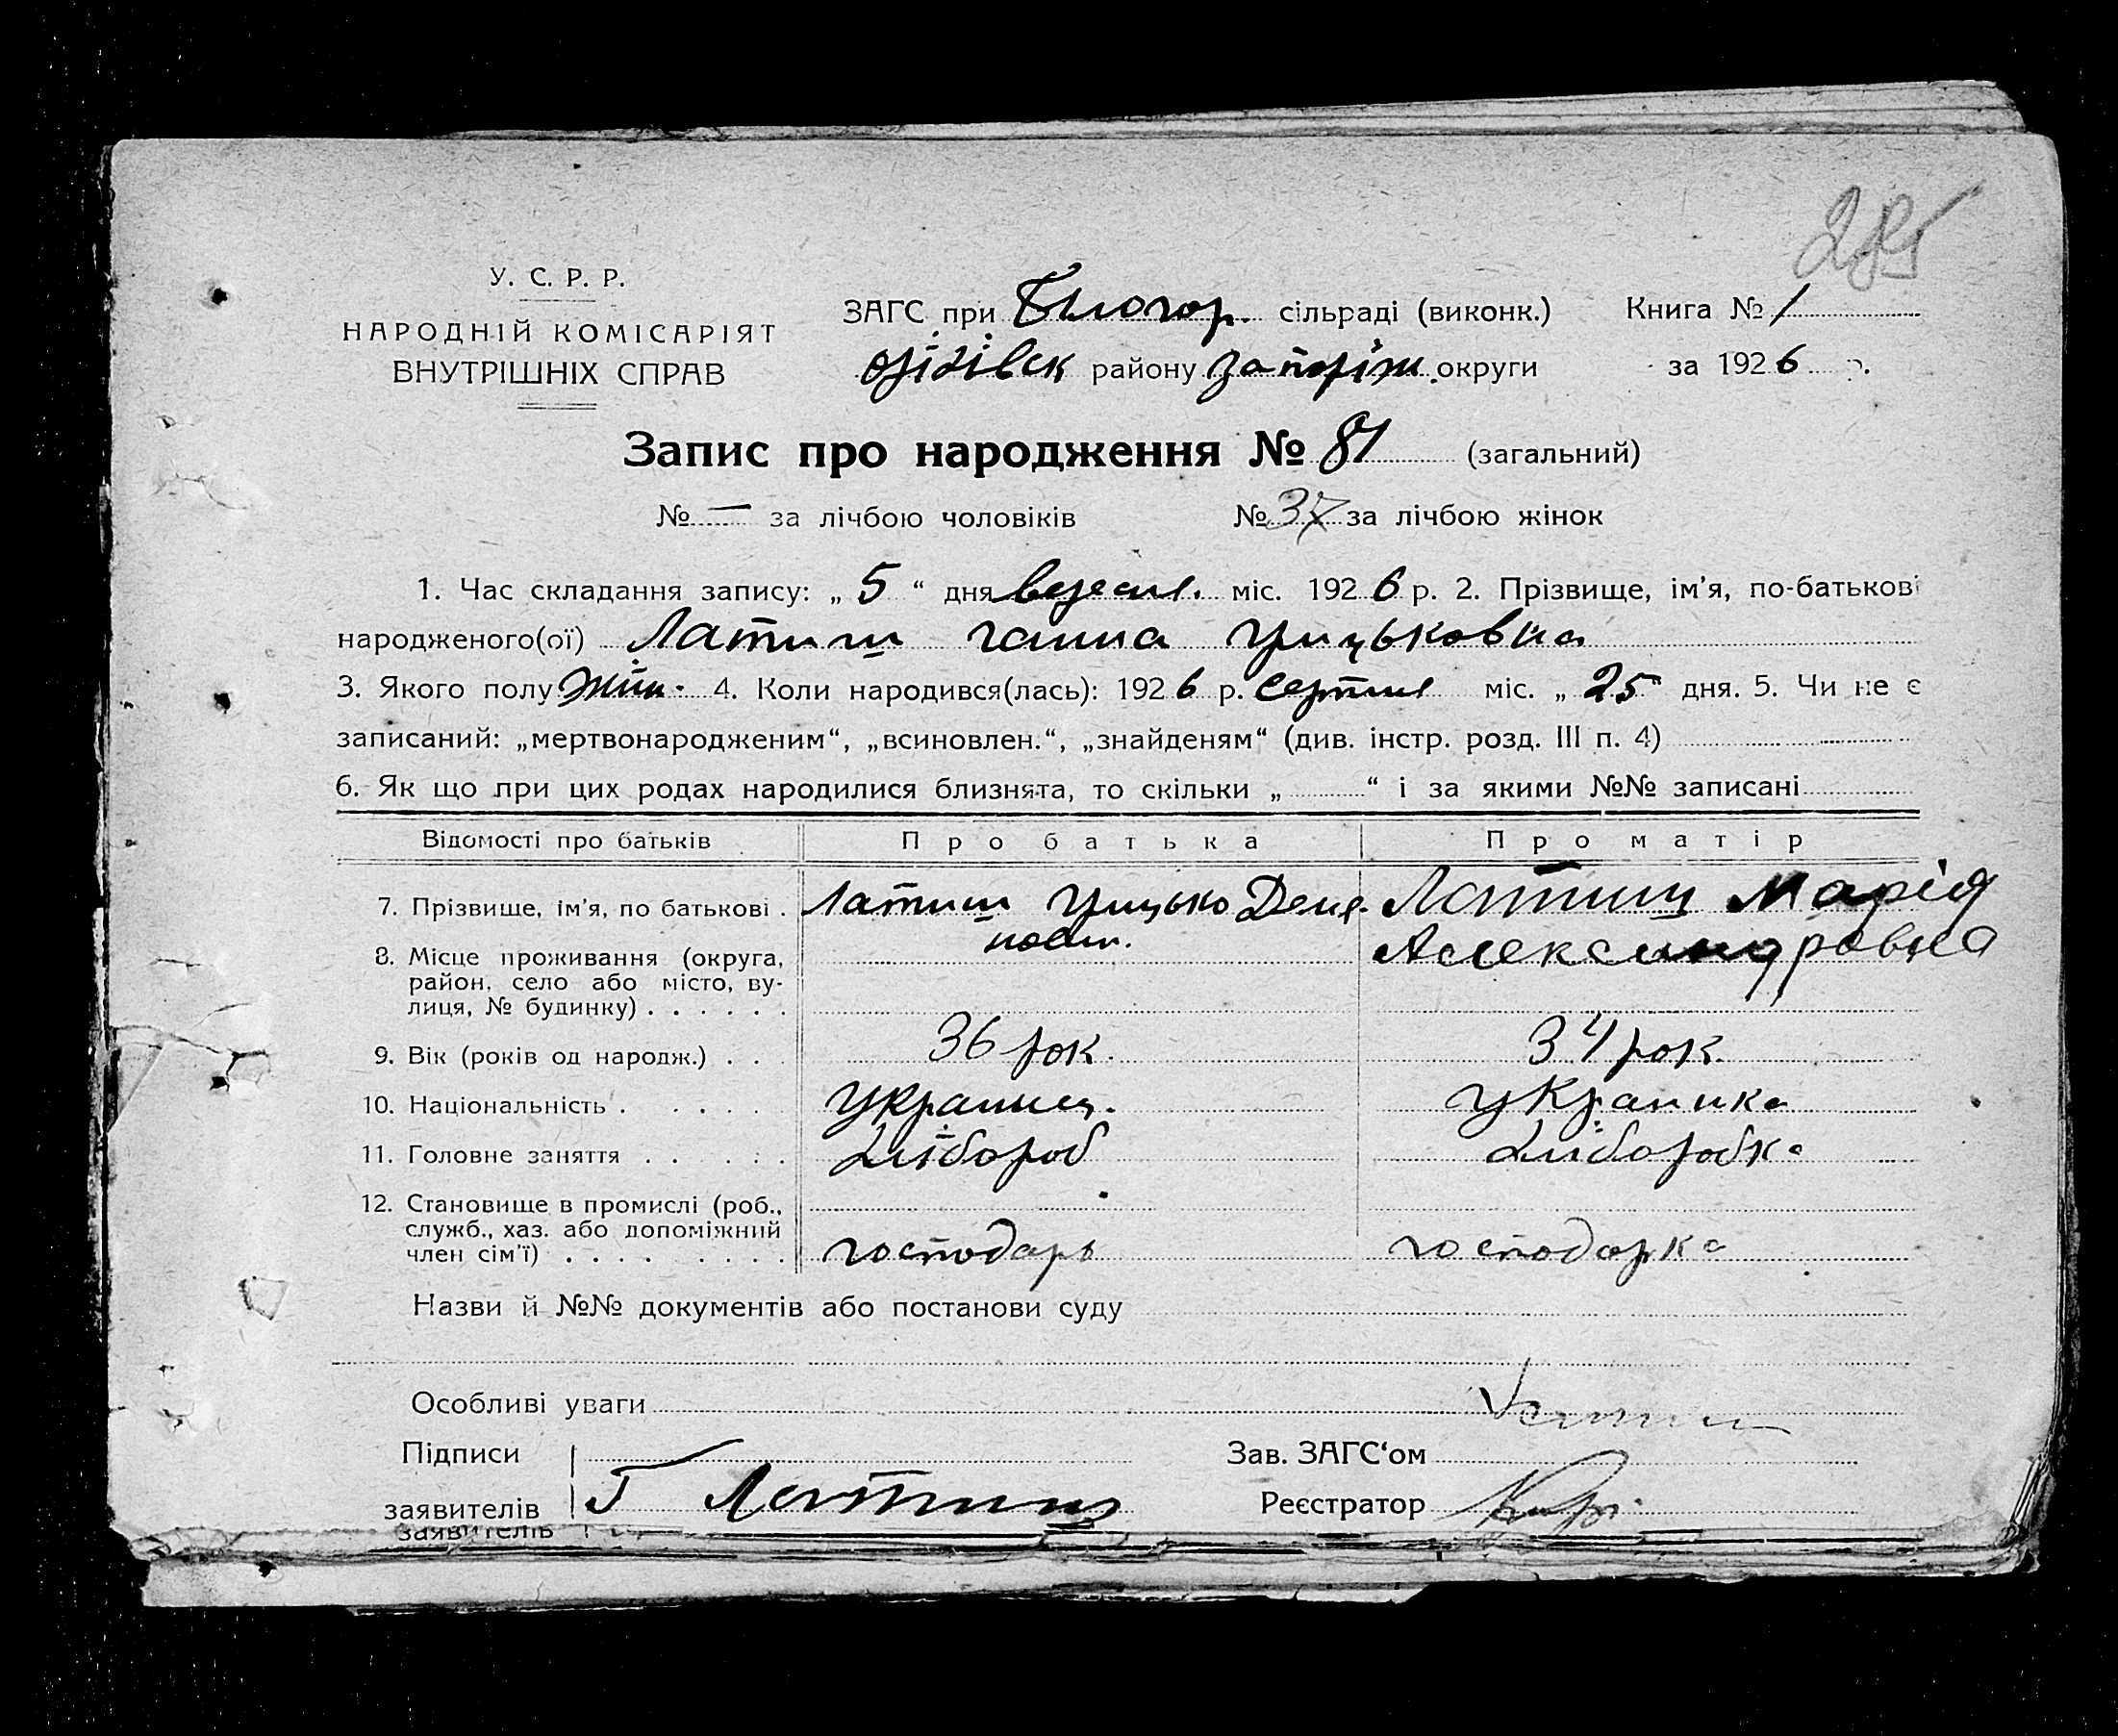 285
У. С. Р. Р.
НАРОДНІЙ КОМІСАРІЯТ
ВНУТРІШНІХ СПРАВ
ЗАГС при Білогор. сільраді (виконк.)
Книга № 1
Оріхівск району Запоріж. округи
за 1926 р.
Запис про народження № 81 (загальний)
№ — за лічбою чоловіків № 37 за лічбою жінок
1. Час складання запису: „ 5 “ дня вересня. міс. 1926 р. 2. Прізвище, ім'я, по-батькові
народженого(ої) Латиш Ганна Грицьковна
3. Якого полу Жін. 4. Коли народився(лась): 1926 р. серпня міс. „ 25 “ дня. 5. Чи не є
записаний: „мертвонародженим“, „всиновлен.“, „знайденям“ (див. інстр. розд. III п. 4)
6. Як що при цих родах народилися близнята, то скільки „ “ і за якими №№ записані
Відомості про батьків Про батька Про матір
7. Прізвище, ім'я, по батькові . Латиш Грицько Латиш Марія
Александровна
8. Місце проживання (округа,
район, село або місто, ву-
лиця, № будинку) . . . . . .
9. Вік (років од народж.) . . 36 рок. 34 рок.
10. Національність . . . . . Украинец. Украинка
11. Головне заняття . . . . . Хлібороб Хліборобка
12. Становище в промислі (роб.,
служб., хаз. або допоміжний
член сім'ї) . . . . . . . . господарь господарка
Назви й №№ документів або постанови суду
Особливі уваги
Підписи
Зав. ЗАГС‘ом
заявителів Г Латиш
Реєстратор
заявителів